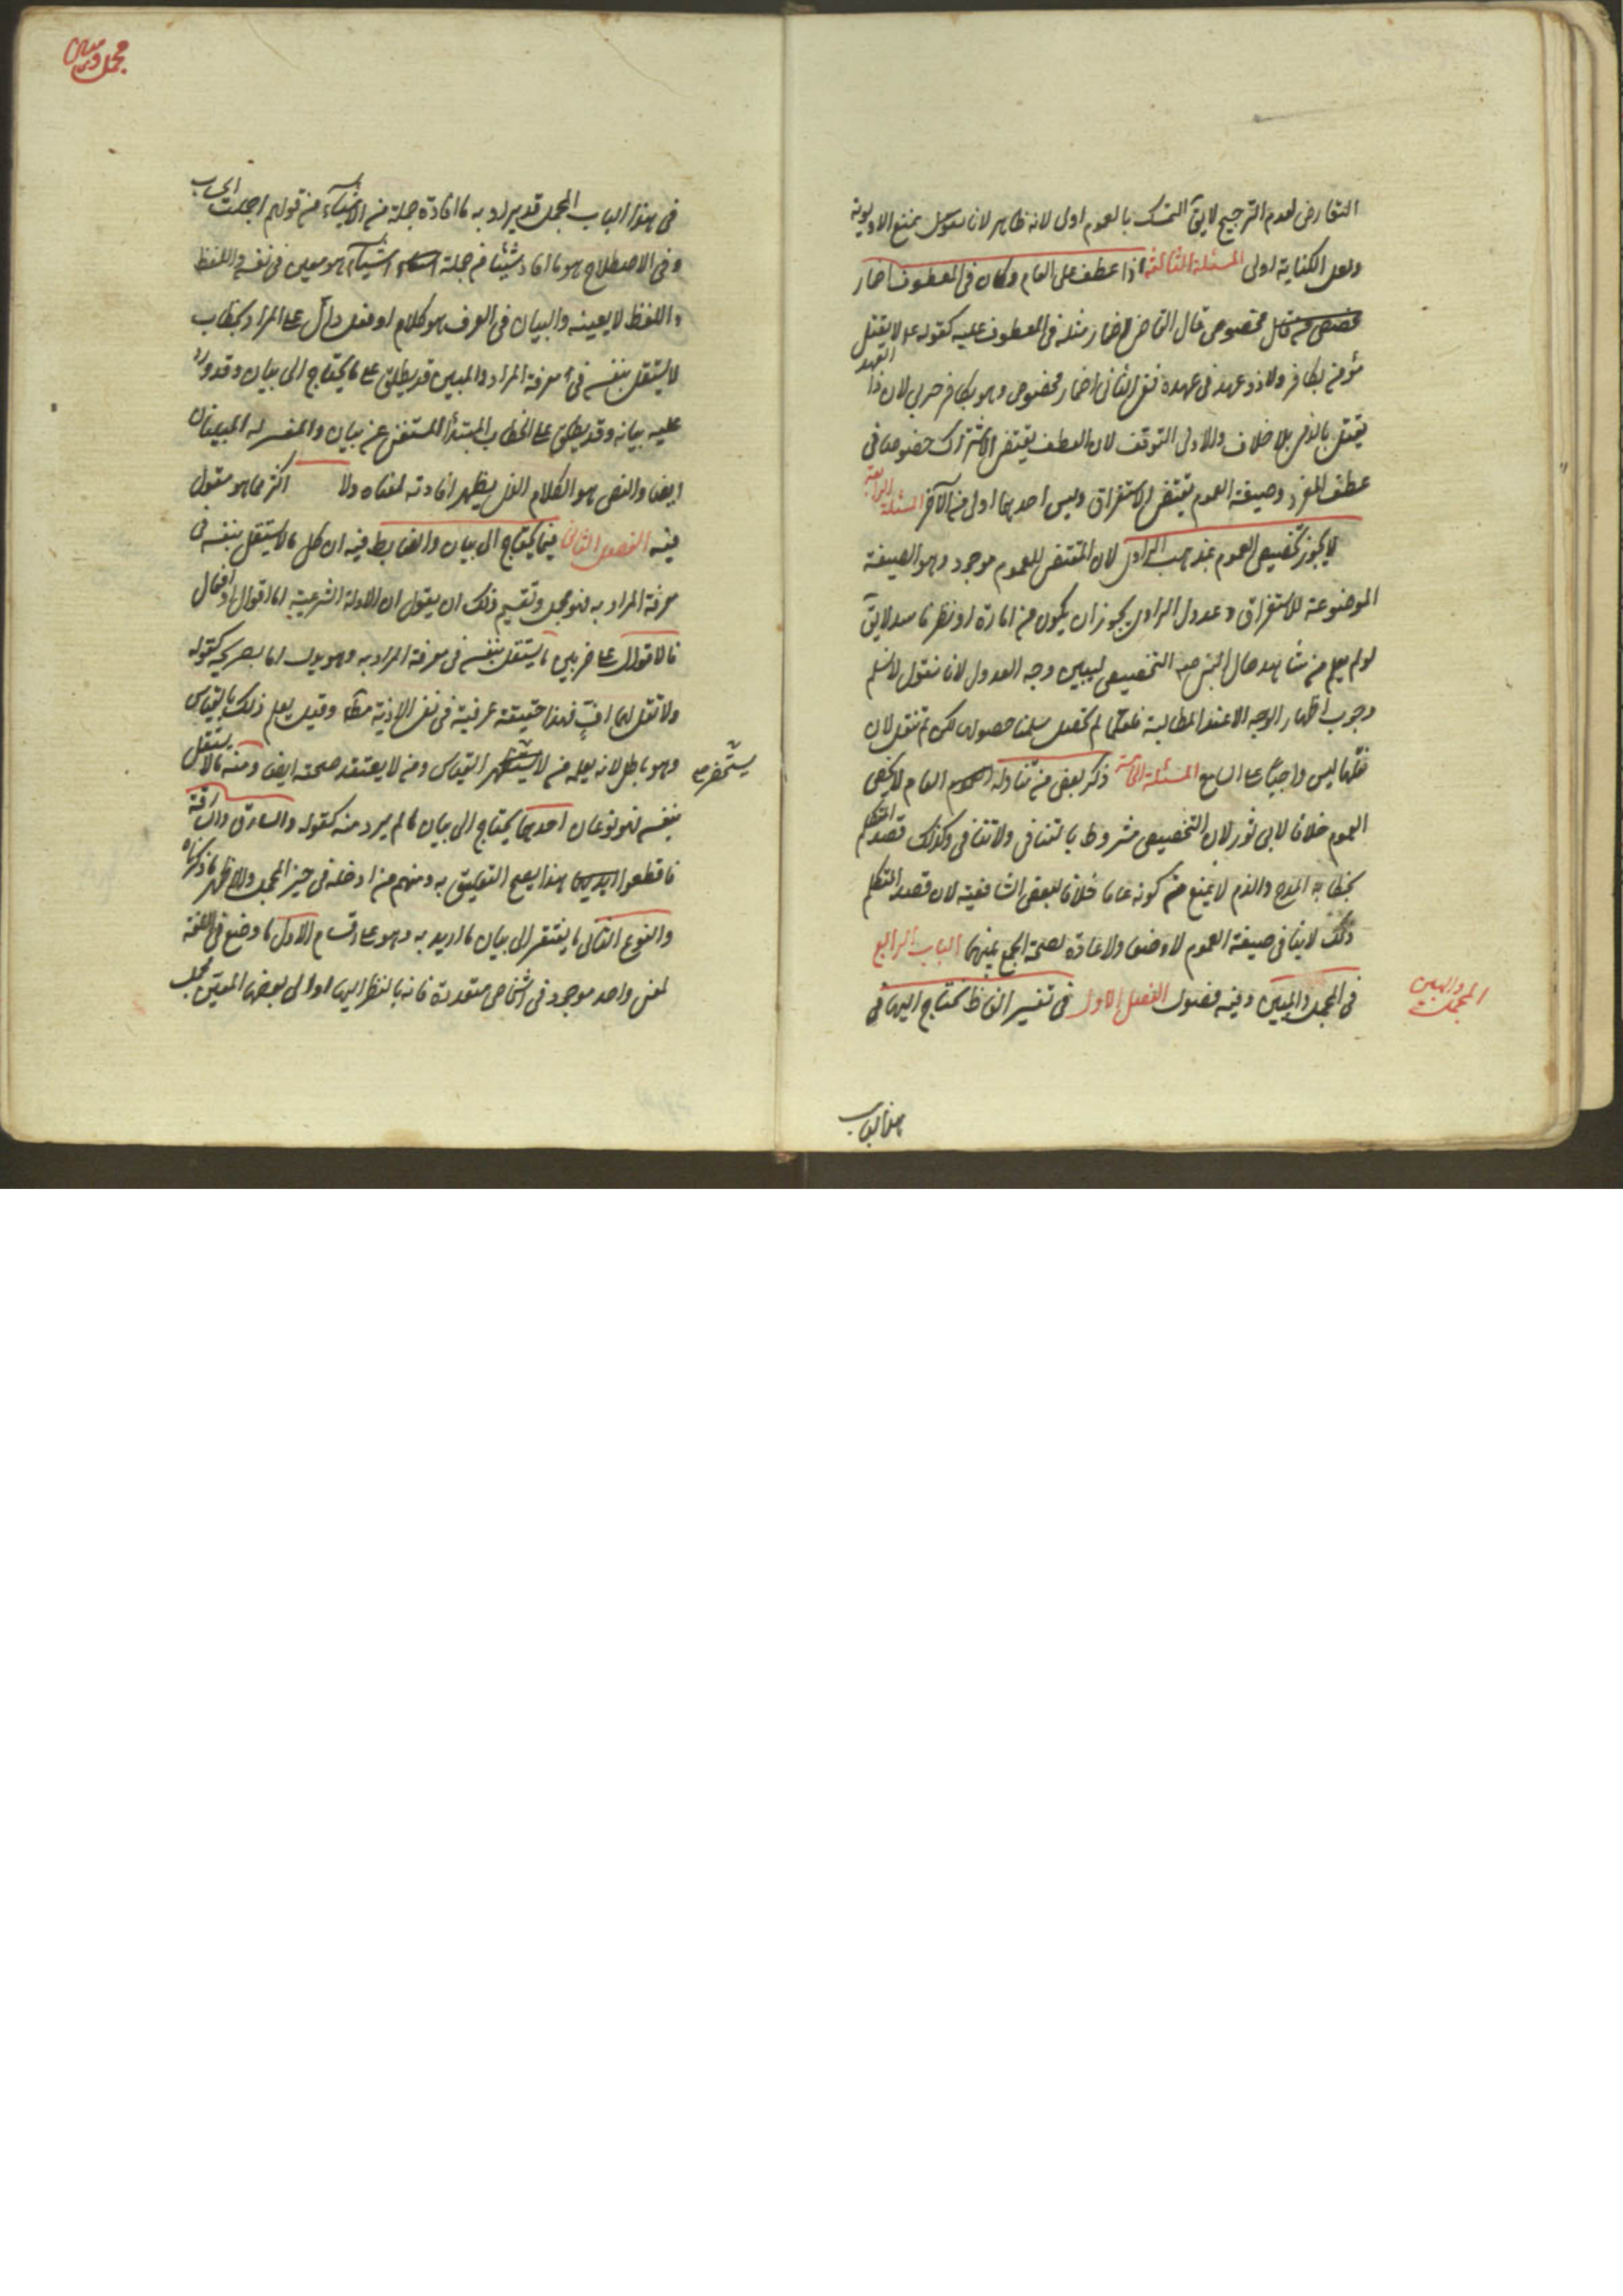 التعارض لعدم الترجيح لا يقآ التمسك بالعموم اولى لانه ظاهر لانا نقول بمنع الاولوية
ولعل الكناية اولى المسئلة الثالثة اذا عطف على العام وكان في المعطوف اضمار
مخصوص قال القاضى اضمار مثله في المعطوف عليه كقوله عم لا يقتل
مؤمن بكافر ولا ذو عهد في عهده ففي الثانى اضمار مخصوص وهو بكافر حربى لان ذا العهد
يقتل بالذمى بلا خلاف والاولى التوقف لان العطف يقتضى الاشتراك خصوصا في
عطف المفرد وصيغة العموم تقتضى الاستغراق وليس احدهما اولى من الآخر المسئلة الرابعة
لا يجوز تخصيص العموم بمذهب الراوى لان المقتضى للعموم موجود وهو الصيغة
الموضوعة للاستغراق وعدول الراوى يجوز ان يكون من امارة او نظر فاسد لا يقآ
لو لم يعلم من شاهد حال النبى صم التخصيص ليبين وجه العدول لانا نقول لا نسلم
وجوب اظهار الوجه الا عند المطالبة فلعلها لم تحصل سلمنا حصولها لكن لم تنقل لان
نقلها ليس واجبا على السامع المسئلة الخامسة ذكر بعض من تناوله العام لا يخص
العموم خلافا لابى ثور لان التخصيص مشروط بالتنافى ولا تنافى وكذلك قصد المتكلم
بخطابه المدح والذم لا يمنع من كونه عاما خلافا لبعض الشافعية لان قصد المتكلم
ذلك لا ينافى صيغة العموم لا وضعا ولا عادة لصحة الجمع بينهما الباب الرابع
في المجمل والمبين وفيه فصول الفصل الاول في تفسير الفاظ تحتاج اليها في
المجمل والمبين
هذا الباب
مجمل ومبين
في هذا الباب المجمل قد يراد به ما افاده جملة من الاشياء من قولهم اجملت الحساب
وفي الاصطلاح هو ما افاد شيئا من جملة اشياء هو معين في نفسه واللفظ
واللفظ لا يعينه والبيان في العرف هو كلام او فعل دال على المراد بخطاب
لا يستقل بنفسه في معرفة المراد والمبين قد يطلق على ما يحتاج الى بيان وقد ورد
عليه بيانه وقد يطلق على الخطاب المبتدأ المستغنى عن بيان والمفسر له المعنيان
ايضا والنص هو الكلام الذى يظهر افادته لمعناه ولا اكثر مما هو مقول
فيه الفصل الثانى فيما يحتاج الى بيان والضابط فيه ان كل ما لا يستقل بنفسه في
معرفة المراد به فهو مجمل وتقسيم ذلك ان يقول ان الادلة الشرعية اما اقوال او افعال
فالاقوال على ضربين ما يستقل بنفسه في معرفة المراد به وهو يدل اما بصريحه كقوله
ولا تقل لهما اف فهذا حقيقة عرفية في نفى الاذية مطآ وقيل يعلم ذلك بالقياس
وهو باطل لانه يعلمه من لا يستحضر القياس ومن لا يعتقد صحته ايضا ومنه ما لا يستقل
يستحضر
بنفسه فهو نوعان احدهما يحتاج الى بيان ما لم يرد منه كقوله والسارق والسارقة
فاقطعوا ايديهما هذا يصح التعليق به ومنهم من ادخله في حيز المجمل والاظهر ما ذكرناه
والنوع الثانى ما يفتقر الى بيان ما اريد به وهو على اقسام الاول ما وضع في اللغة
لمعنى واحد موجود في اشخاص متعددة فانه بالنظر اليها او الى بعضها المعين مجمل